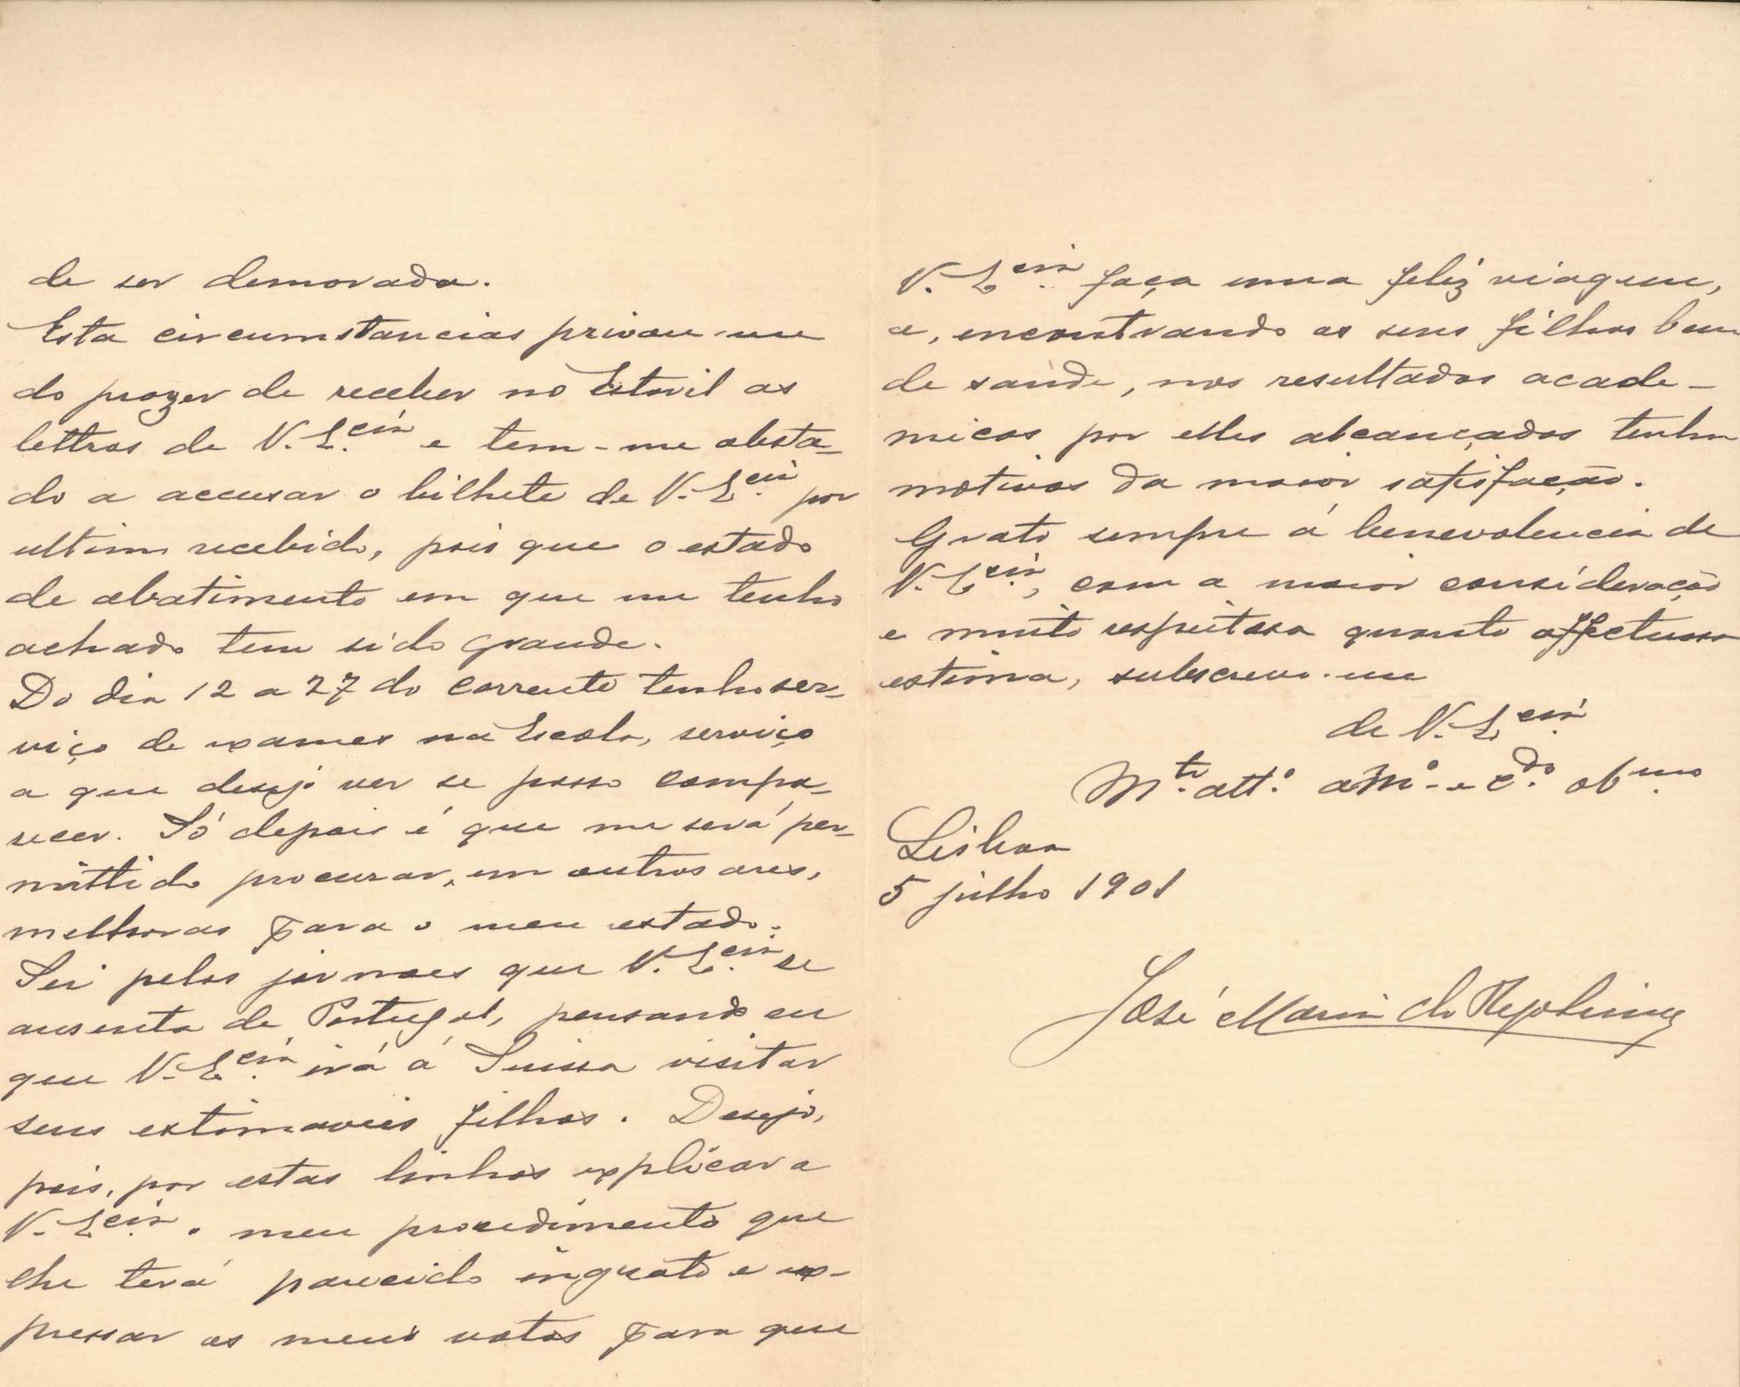 de ser demorada.
Esta circumstancias privou-me
do prazer de receber no Estoril as
lettras de V. Ex.cia e tem-me obsta-
do a accusar o bilhete de V. Ex.cia por
ultimo recebido, pois que o estado
de abatimento em que me tenho
achado tem sido grande.
Do dia 12 a 27 do corrente tenho ser-
viço de exames na Escola, serviço
a que desejo ver se posso compa-
recer. Só depois é que me será per-
mittido procurar, em outros ares,
melhoras para o meu estado.
Sei pelos jornaes que V. Ex.cia se
ausenta de Portugal, pensando eu
que V. Ex.cia irá á Suissa visitar
seus estimaveis filhos. Desejo,
pois, por estas linhas explicar a
V. Ex.cia o meu procedimento que
lhe terá parecido ingrato e ex-
pressar os meus votos para que
V. Ex.cia faça uma feliz viagem,
e, encontrando os seus filhos bem
de saude, nos resultados acade-
micos por elles alcançados tenha
motivos da maior satisfação.
Grato sempre á benevolencia de
V. Ex.cia, com a maior consideração
e muito respeitosa quanto affectuosa
estima, subscrevo-me
de V. Ex.cia
M.to att.o am.o e c.do ob.mo
Lisboa
5 julho 1901
José Maria